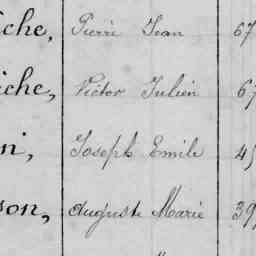 iche, Pierre Jean 67
iche, Victor Julien 67
ni, Joseph Emile 45
son, Auguste Marie 39